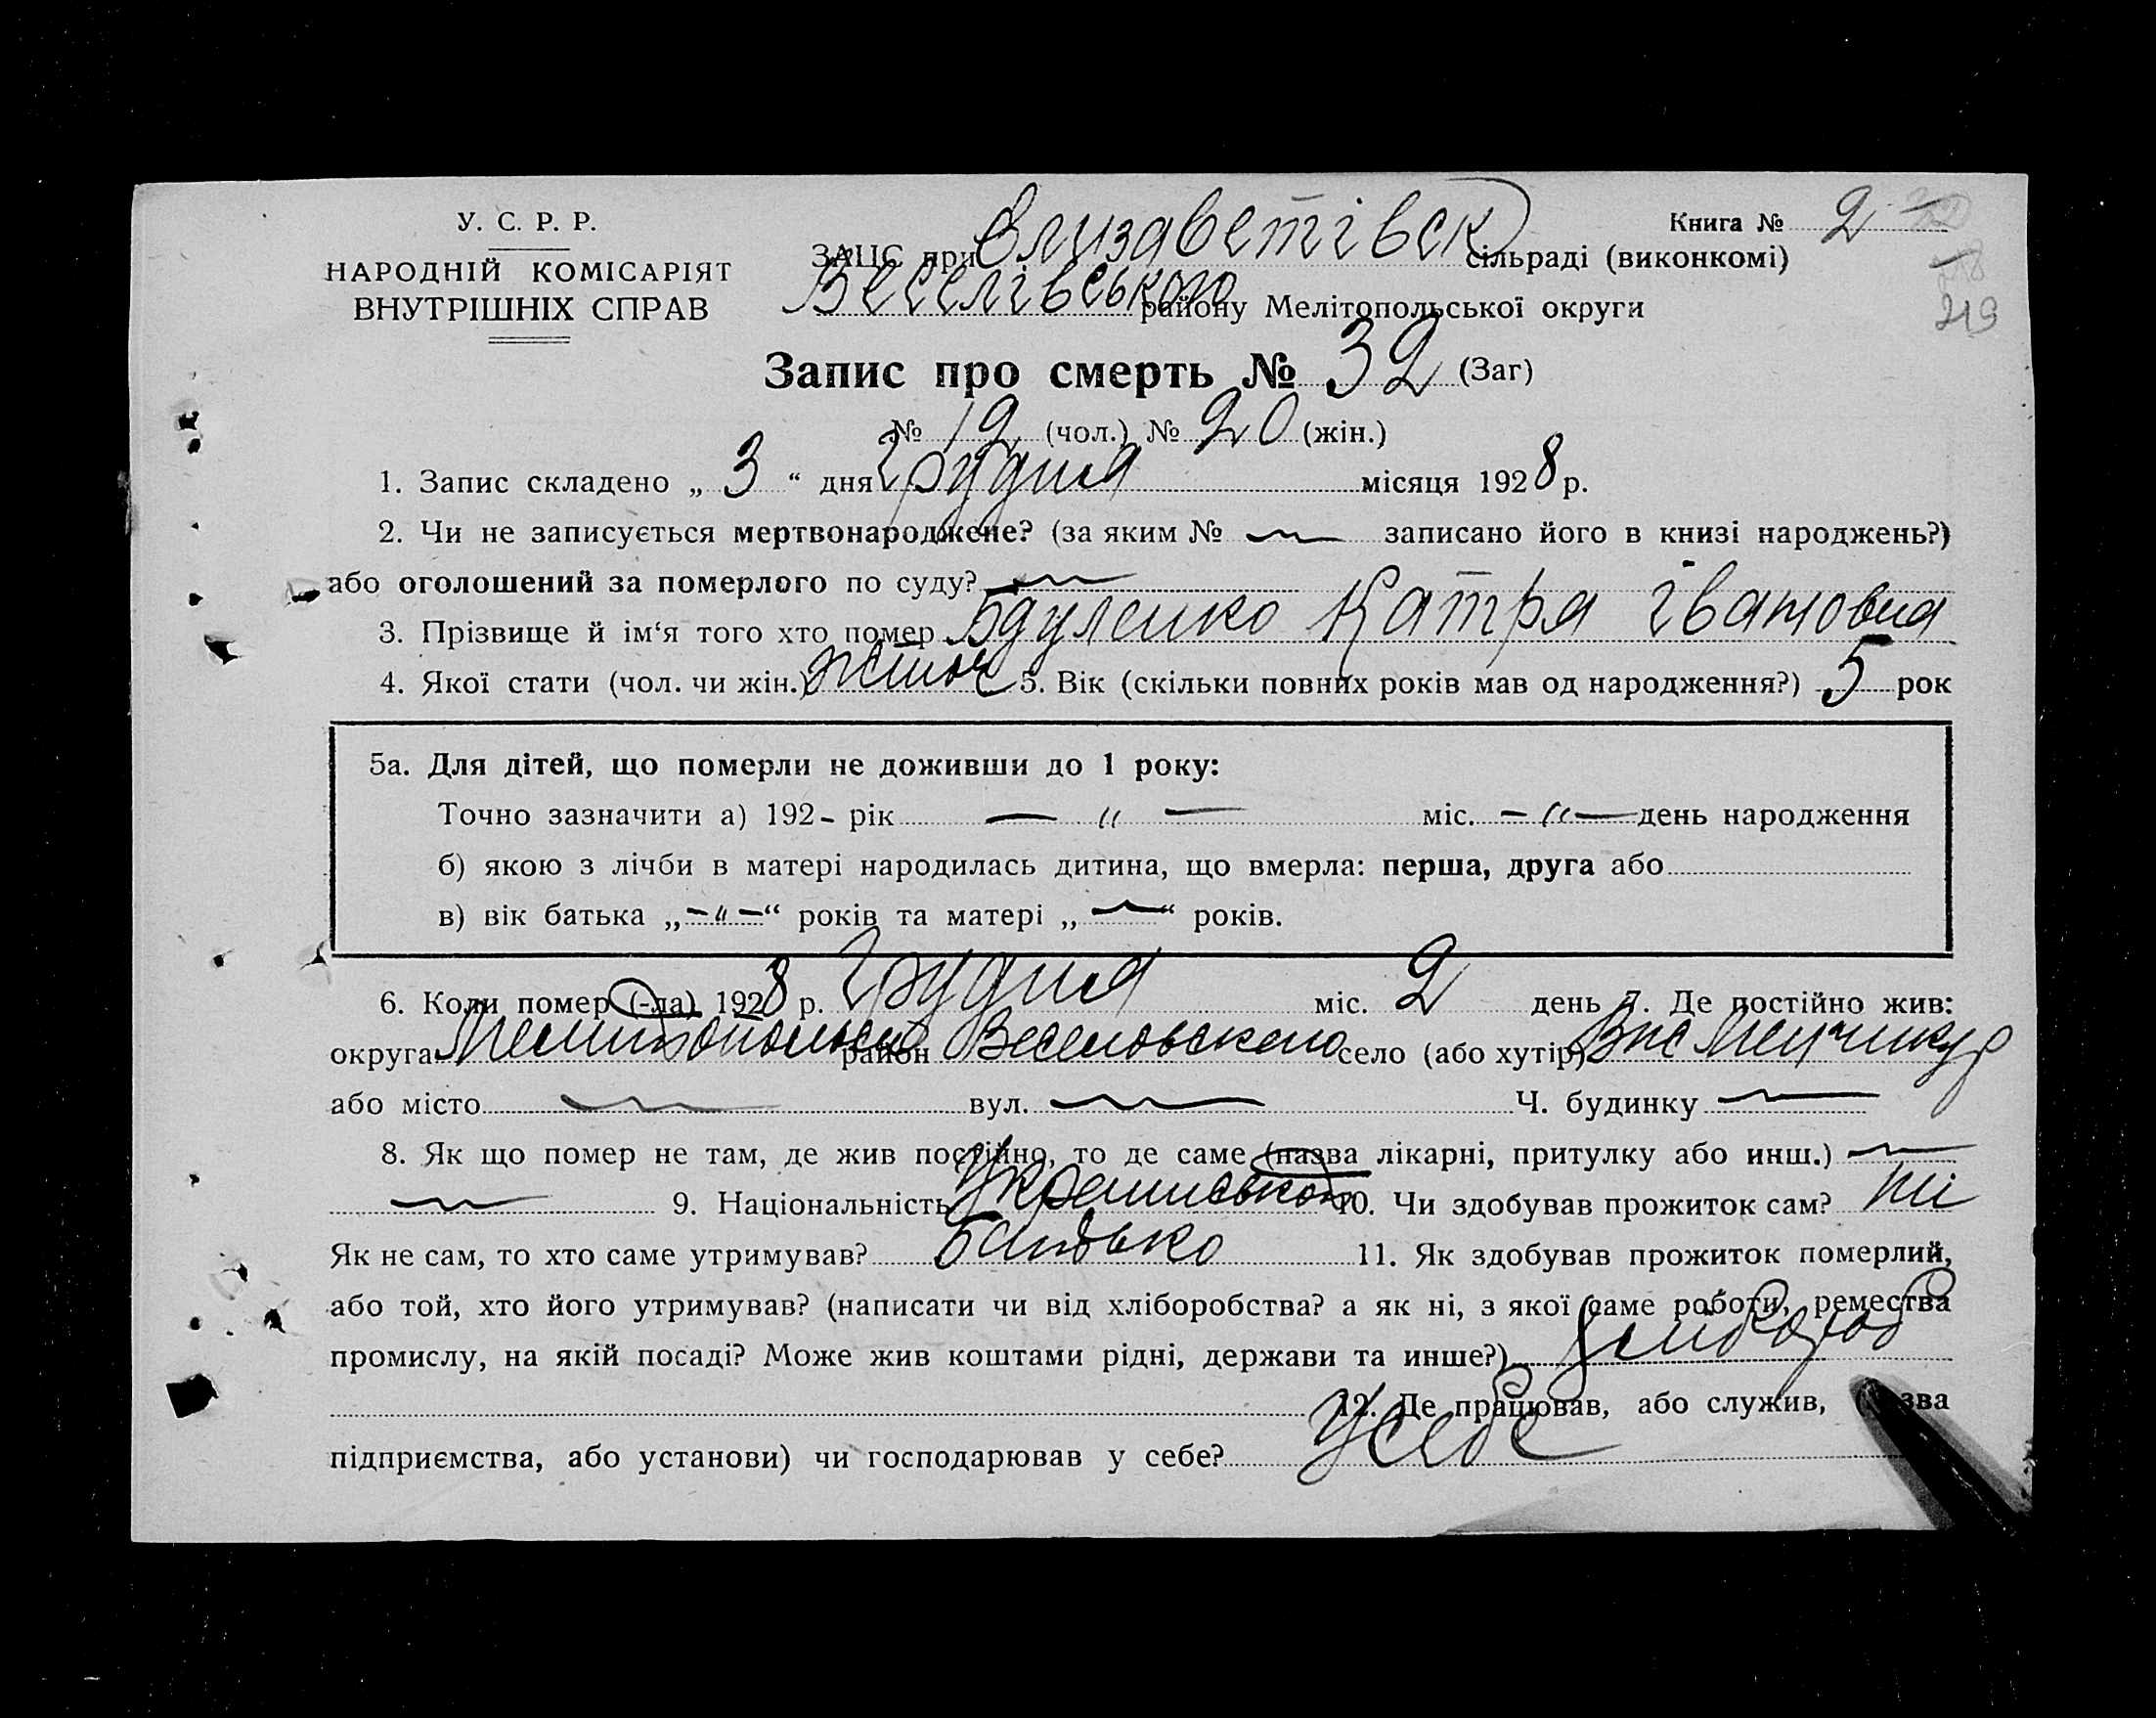 У. С. Р. Р.
НАРОДНІЙ КОМІСАРІЯТ
ВНУТРІШНІХ СПРАВ
Книга № 2
ЗАЦС при Елизаветівск сільраді (виконкомі)
Веселівського району Мелітопольської округи
219
Запис про смерть № 32 (Заг)
№ 12 (чол.) № 20 (жін.)
1. Запис складено „ 3 “ дня Грудня місяця 1928 р.
2. Чи не записується мертвонароджене? (за яким № записано його в книзі народжень?)
або оголошений за померлого по суду?
3. Прізвище й ім‘я того хто помер Катря Івановна
4. Якої стати (чол. чи жін.) 5. Вік (скільки повних років мав од народження?) 5 рок
5а. Для дітей, що померли не доживши до 1 року:
Точно зазначити а) 192- рік — „ — міс. — „ — день народження
б) якою з лічби в матері народилась дитина, що вмерла: перша, друга або
в) вік батька „ – „ – “ років та матері „ — “ років.
6. Коли помер (-ла) 1928 р. Грудня міс. 2 день 7. Де постійно жив:
округа район Веселовського село (або хутір)
або місто вул. Ч. будинку
8. Як що помер не там, де жив постійно, то де саме (назва лікарні, притулку або инш.)
9. Національність 10. Чи здобував прожиток сам? ні
Як не сам, то хто саме утримував? Батько 11. Як здобував прожиток померлий,
або той, хто його утримував? (написати чи від хліборобства? а як ні, з якої саме роботи, ремества
промислу, на якій посаді? Може жив коштами рідні, держави та инше?)
12. Де працював, або служив, (назва
підприємства, або установи) чи господарював у себе? У себе